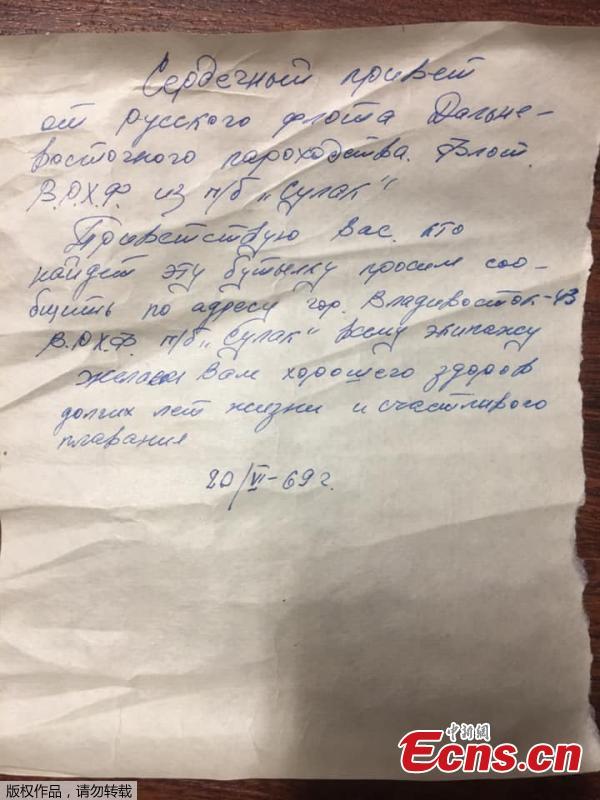 Сердечный привет
от русского флота Дальне-
восточного пароходства. Флот.
В.Р.Х.Ф. из п/б „Сулак“
Приветствую Вас кто
найдет эту бутылку просим соо-
бщить по адресу гор. Владивосток-43
В.Р.Х.Ф. п/б „Сулак“ всему экипажу
желаем Вам хорошего здоров
долгих лет жизни и счастливого
плавания
20/VI-69 г.
中新網
Ecns.cn
版权作品,请勿转载